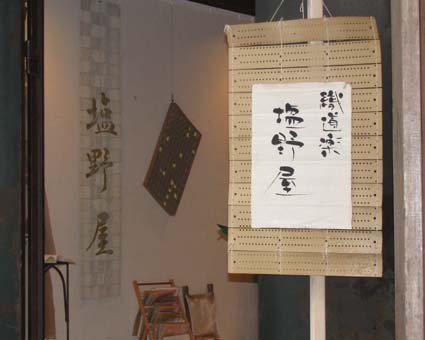 織道楽
塩野屋
塩野屋